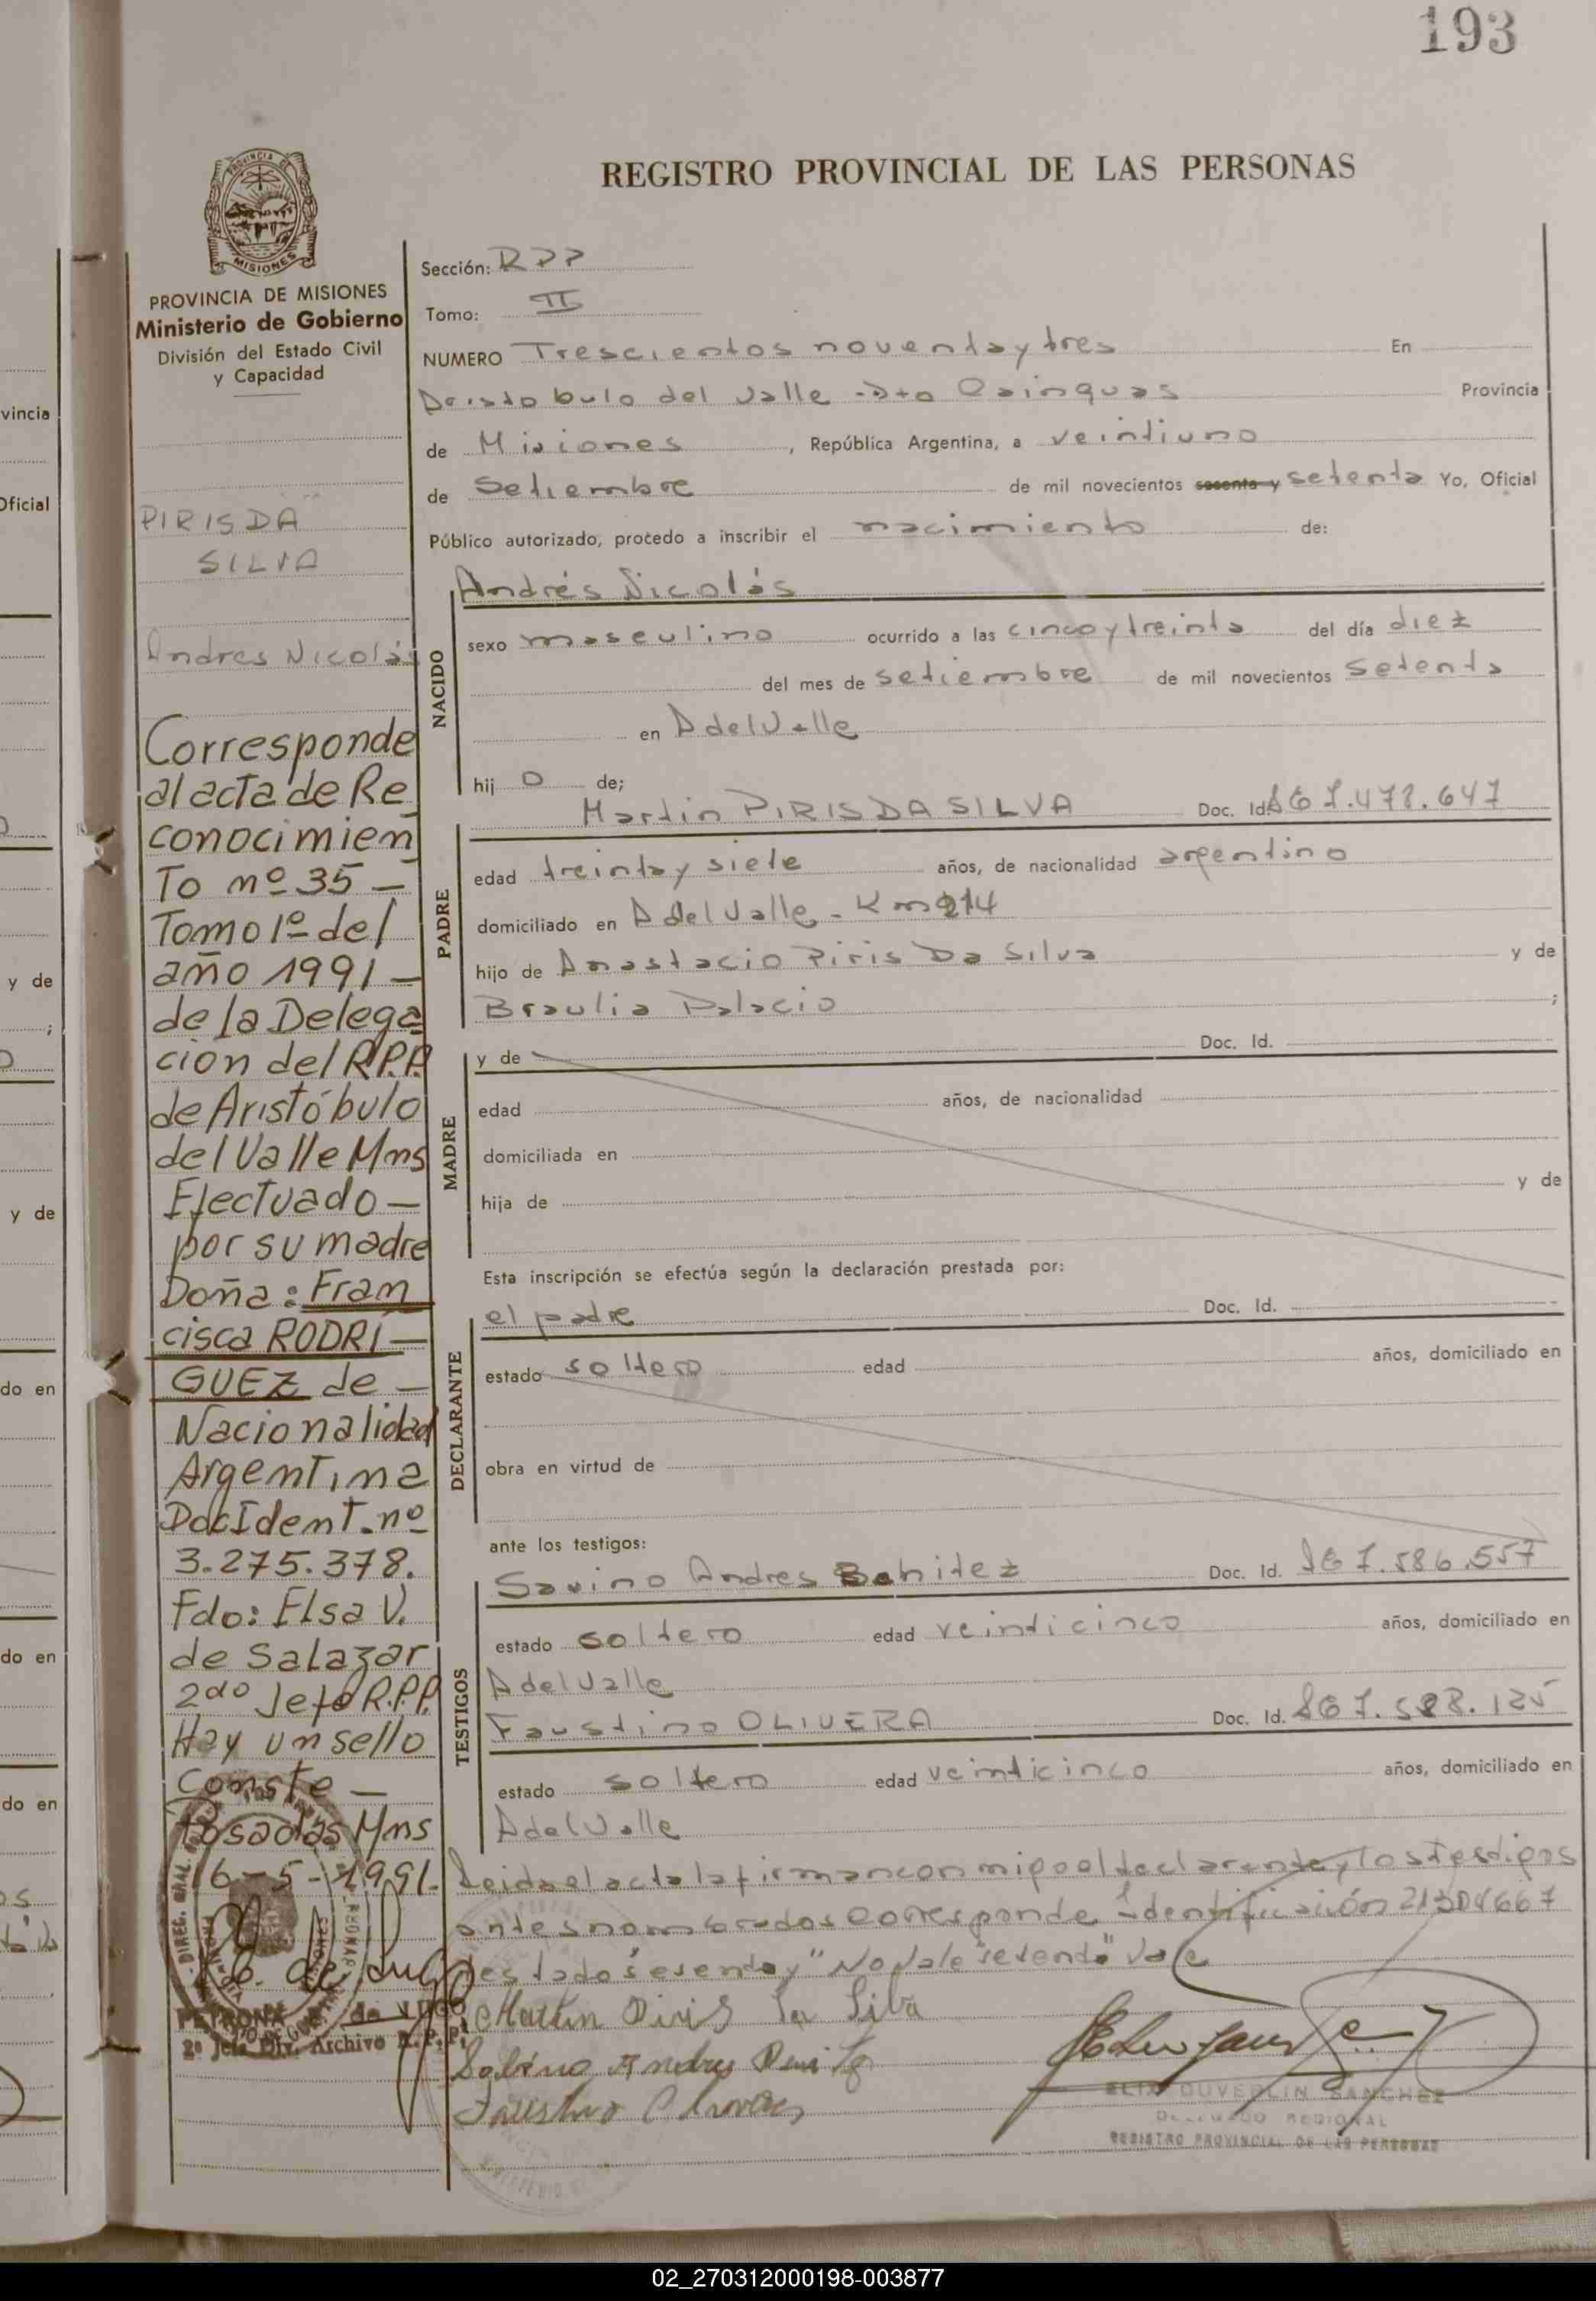 193
REGISTRO PROVINCIAL DE LAS PERSONAS
PROVINCIA DE MISIONES
PROVINCIA DE MISIONES
Ministerio de Gobierno
División del Estado Civil
y Capacidad
PIRIS DA
SILVA
Andres Nicolás
Corresponde
al acta de Re
conocimien
To nº 35 —
Tomo 1º del
año 1991 —
de la Delega
ción del R.P.P.
de Aristóbulo
del Valle Mns
Efectuado —
por su madre
Doña: Fran
cisca RODRÍ—
GUEZ de —
Nacionalidad
Argentina
Doc Ident. nº
3.275.378.
Fdo: Elsa V.
de Salazar
2do Jefe R.P.P.
Hay un sello
Conste —
Posadas Mns
16-5-1991.
PETRONA de LUGO
2º Jefe Div. Archivo R.P.P.
Sección: RPP
Tomo: II
NUMERO Trescientos noventa y tres En
Aristobulo del Valle - Dto Cainguas Provincia
de Misiones, República Argentina, a veintiuno
de Setiembre de mil novecientos sesenta y setenta Yo, Oficial
Público autorizado, procedo a inscribir el nacimiento de:
Andrés Nicolás
NACIDO
sexo masculino ocurrido a las cinco y treinta del día diez
del mes de setiembre de mil novecientos setenta
en A del Valle
hij o de;
Martin PIRIS DA SILVA Doc. Id. 7.478.647
PADRE
edad treinta y siete años, de nacionalidad argentino
domiciliado en A del Valle - Km 214
hijo de Anastacio Piris Da Silva y de
Braulia Palacio ;
MADRE
y de Doc. Id.
edad años, de nacionalidad
domiciliada en
hija de y de
Esta inscripción se efectúa según la declaración prestada por:
DECLARANTE
el padre Doc. Id.
estado soltero edad años, domiciliado en
obra en virtud de
ante los testigos:
TESTIGOS
Savino Andres Benitez Doc. Id. 7.586.557
estado soltero edad veinticinco años, domiciliado en
A del Valle
Faustino OLIVERA Doc. Id.
estado soltero edad veinticinco años, domiciliado en
A del Valle
Leida el acta la firman conmigo el declarante y los testigos
antes nombrados Corresponde Identificación 21304667
testado "sesenta y" No Vale "setenta" Vale
Martin Piris Da Silva
Sabino Andres Benitez
Faustino Olivera
ELIX DUVERLIN SANCHEZ
DELEGADO REGIONAL
REGISTRO PROVINCIAL DE LAS PERSONAS
vincia
Oficial
y de
;
y de
do en
do en
do en
02_270312000198-003877